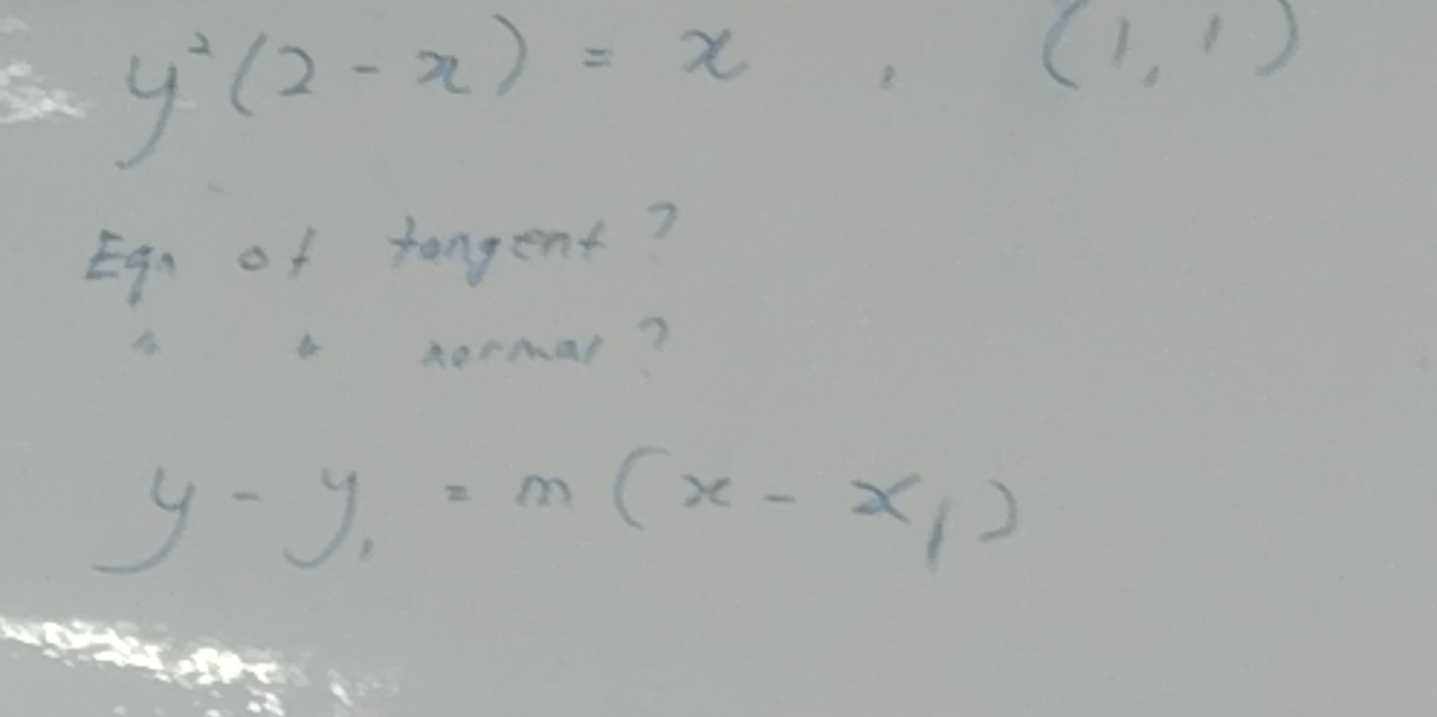 y²(2 - x) = x , (1, 1)
Eqn of tangent?
" " normal?
y - y₁ = m(x - x₁)